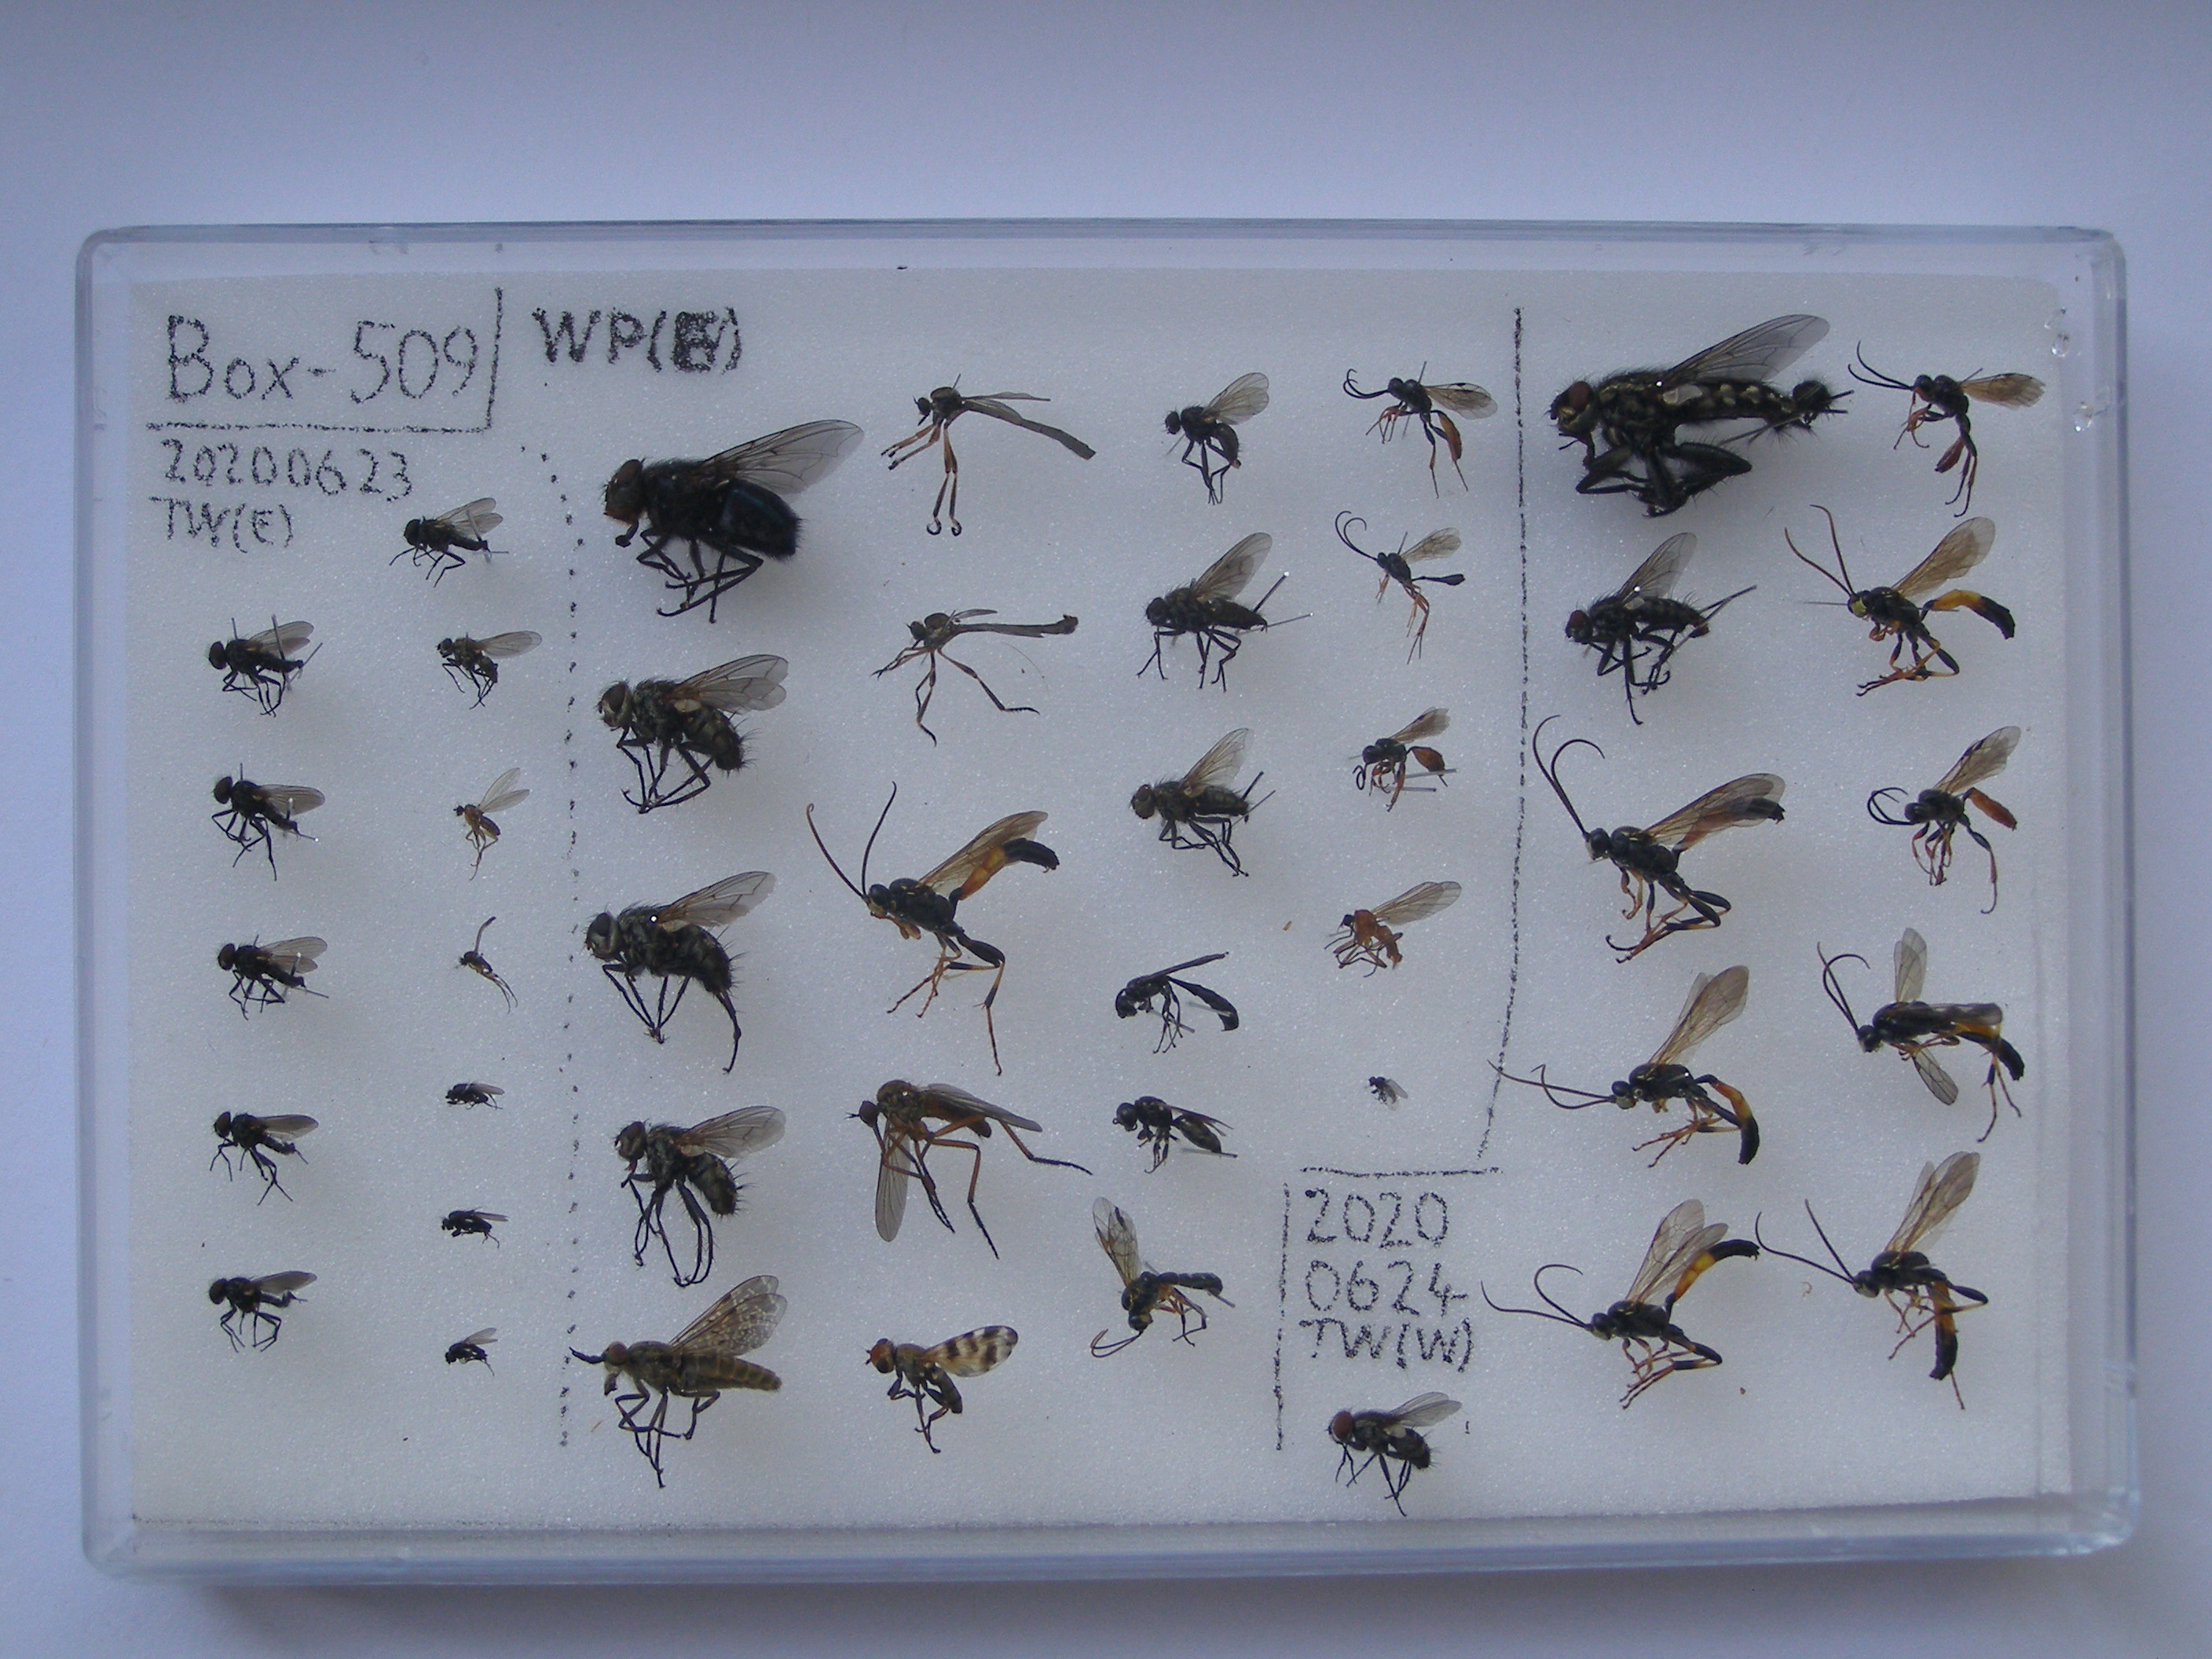 Box-509
WP(E)
20200623
TW(E)
2020
0624
TW(W)